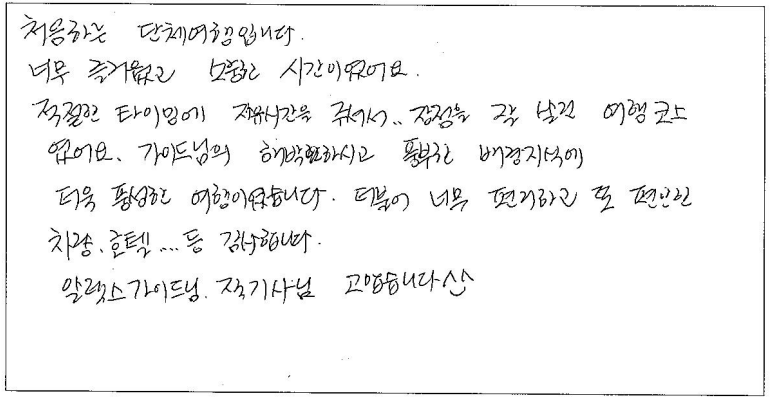 처음하는 단체여행입니다.
너무 즐거웠고 보람찬 시간이였어요.
적절한 타이밍에 자유시간을 줘서.. 장점을 잘 살린 여행코스
였어요. 가이드님의 해박하시고 풍부한 배경지식에
더욱 풍성한 여행이였습니다. 더불어 너무 편리하고 또 편안한
차량. 호텔... 등 감사합니다.
알렉스가이드님. 잭기사님 고맙습니다^^